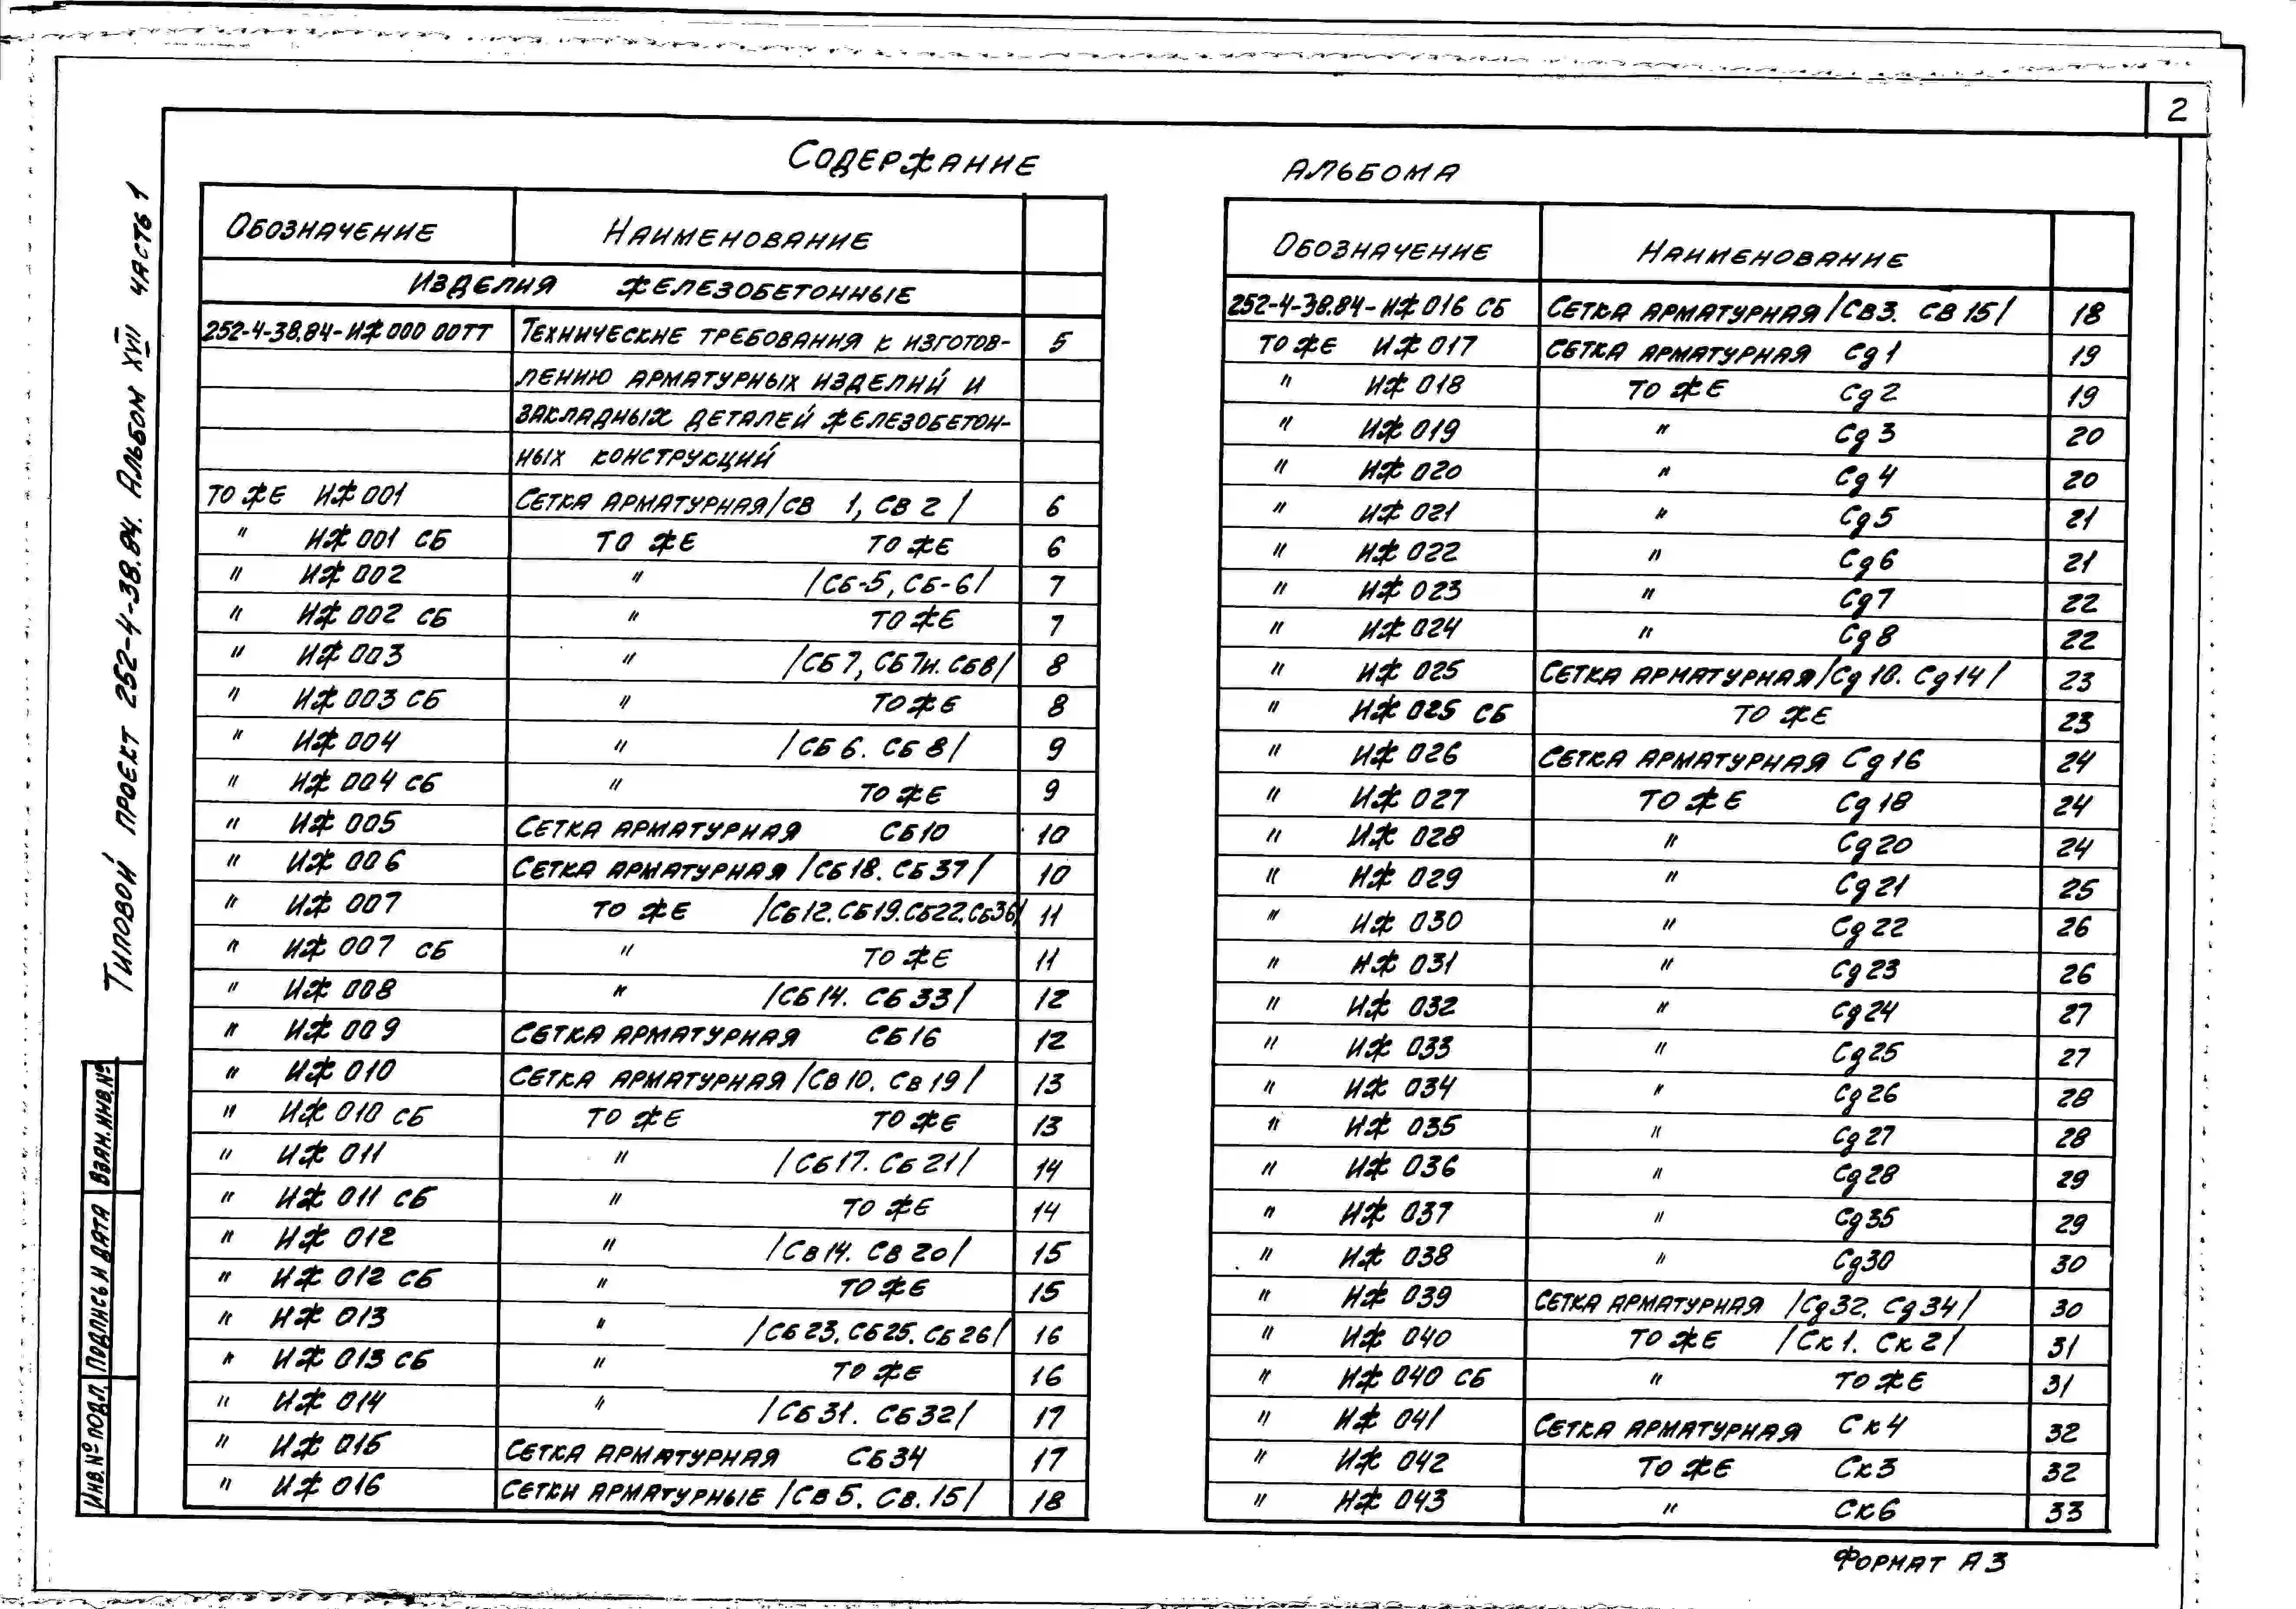 2
Содержание альбома
Обозначение Наименование
Изделия железобетонные
252-4-38.84-ИЖ 000 00ТТ Технические требования к изготов- 5
лению арматурных изделий и
закладных деталей железобетон-
ных конструкций
то же ИЖ 001 Сетка арматурная /СВ 1, СВ 2/ 6
" ИЖ 001 СБ то же то же 6
" ИЖ 002 " /СБ-5, СБ-6/ 7
" ИЖ 002 СБ " то же 7
" ИЖ 003 " /СБ7, СБ7н. СБ8/ 8
" ИЖ 003 СБ " то же 8
" ИЖ 004 " /СБ 6. СБ 8/ 9
" ИЖ 004 СБ " то же 9
" ИЖ 005 Сетка арматурная СБ10 10
" ИЖ 006 Сетка арматурная /СБ18. СБ37/ 10
" ИЖ 007 то же /СБ12. СБ19. СБ22. СБ36/ 11
" ИЖ 007 СБ " то же 11
" ИЖ 008 " /СБ14. СБ33/ 12
" ИЖ 009 Сетка арматурная СБ16 12
" ИЖ 010 Сетка арматурная /СВ10. СВ19/ 13
" ИЖ 010 СБ то же то же 13
" ИЖ 011 " /СБ17. СБ21/ 14
" ИЖ 011 СБ " то же 14
" ИЖ 012 " /СВ14. СВ20/ 15
" ИЖ 012 СБ " то же 15
" ИЖ 013 " /СБ23. СБ25. СБ26/ 16
" ИЖ 013 СБ " то же 16
" ИЖ 014 " /СБ31. СБ32/ 17
" ИЖ 015 Сетка арматурная СБ34 17
" ИЖ 016 Сетки арматурные /СВ5. СВ.15/ 18
Обозначение Наименование
252-4-38.84-ИЖ 016 СБ Сетка арматурная /СВ3. СВ 15/ 18
то же ИЖ 017 Сетка арматурная Сд1 19
" ИЖ 018 то же Сд2 19
" ИЖ 019 " Сд3 20
" ИЖ 020 " Сд4 20
" ИЖ 021 " Сд5 21
" ИЖ 022 " Сд6 21
" ИЖ 023 " Сд7 22
" ИЖ 024 " Сд8 22
" ИЖ 025 Сетка арматурная /Сд10. Сд14/ 23
" ИЖ 025 СБ то же 23
" ИЖ 026 Сетка арматурная Сд16 24
" ИЖ 027 то же Сд18 24
" ИЖ 028 " Сд20 24
" ИЖ 029 " Сд21 25
" ИЖ 030 " Сд22 26
" ИЖ 031 " Сд23 26
" ИЖ 032 " Сд24 27
" ИЖ 033 " Сд25 27
" ИЖ 034 " Сд26 28
" ИЖ 035 " Сд27 28
" ИЖ 036 " Сд28 29
" ИЖ 037 " Сд35 29
" ИЖ 038 " Сд30 30
" ИЖ 039 Сетка арматурная /Сд32. Сд34/ 30
" ИЖ 040 то же /Ск1. Ск2/ 31
" ИЖ 040 СБ " то же 31
" ИЖ 041 Сетка арматурная Ск4 32
" ИЖ 042 то же Ск3 32
" ИЖ 043 " Ск6 33
Формат А3
Типовой проект 252-4-38.84. Альбом XVII часть 1
Взам. инв. №
Подпись и дата
Инв. № подл.